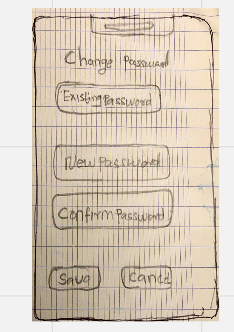 Change Password
Existing Password
New Password
Confirm Password
Save
Cancel